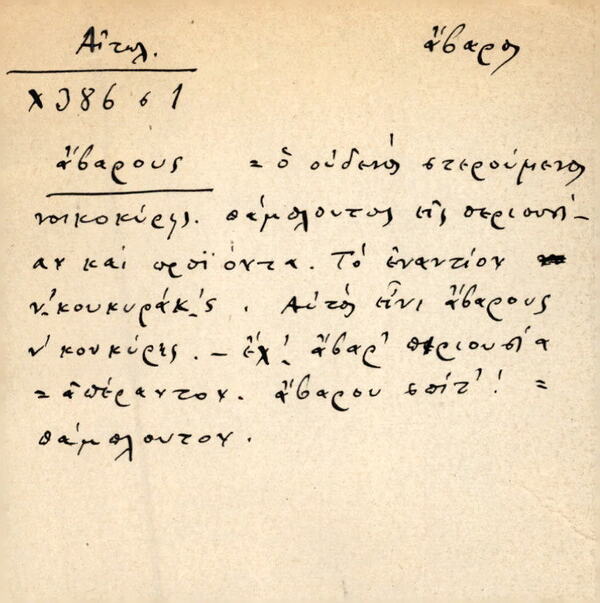 Αἰτωλ. ἄβαρος
χ 386 σ 1
ἄβαρους = ὁ οὐδενὸς στερούμενος
νοικοκύρης. πάμπλουτος εἰς περιουσί-
αν καὶ προϊόντα. Τὸ ἐναντίον
ν'κουκυράκ'ς. Αὐτὸς εἶνι ἄβαρους
ν'κουκύρης. – ἔχ' ἄβαρ' περιουσία
= ἀπέραντον. ἄβαρου σπίτ'! =
πάμπλουτον.